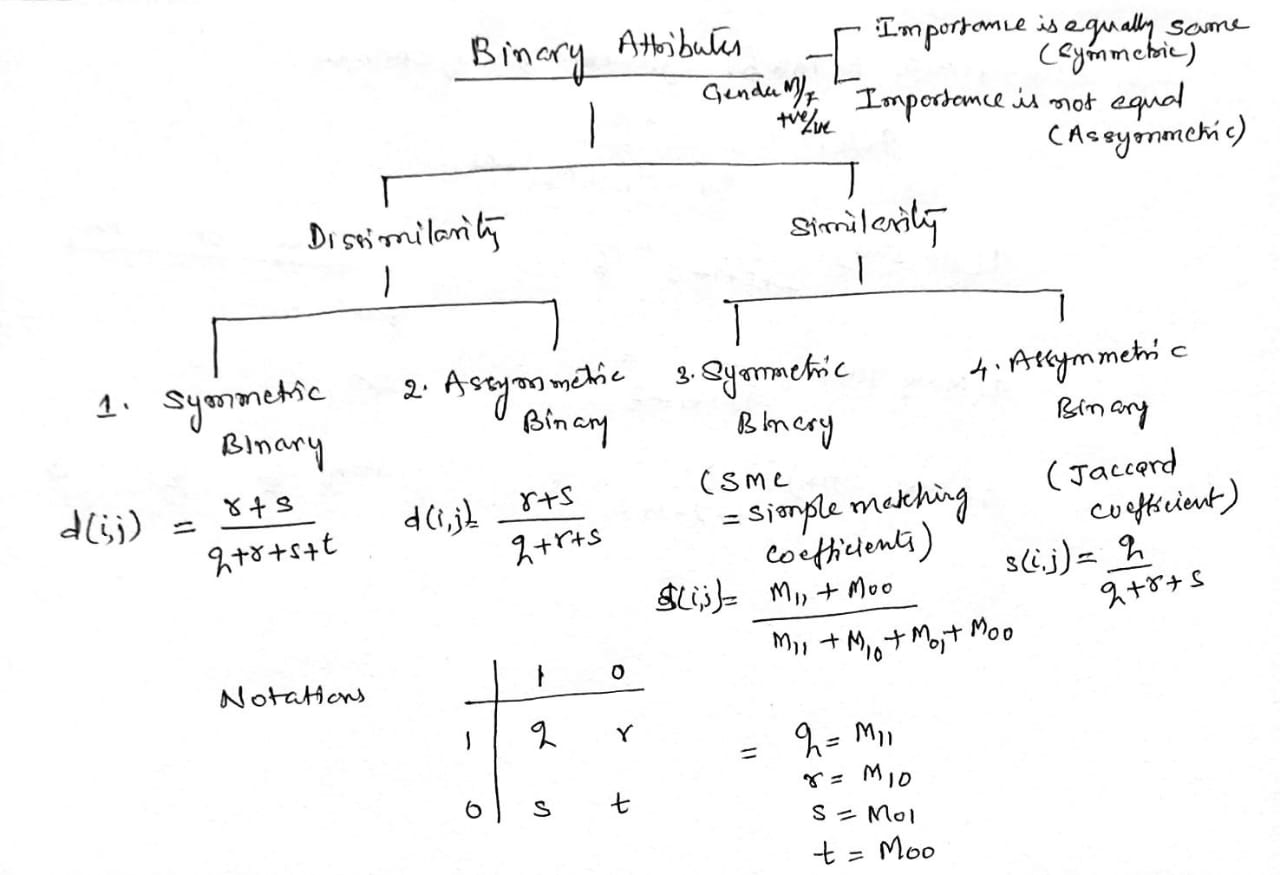 Binary Attributes
Importance is equally same
(Symmetric)
Gender M/F
+ve/-ve
Importance is not equal
(Assymmetric)
Dissimilarity
Similarity
1. Symmetric
Binary
d(i,j) = r+s / q+r+s+t
2. Assymmetric
Binary
d(i,j) = r+s / q+r+s
3. Symmetric
Binary
(SMC
= simple matching
coefficients)
s(i,j) = M11 + M00 / M11 + M10 + M01 + M00
4. Assymmetric
Binary
(Jaccard
coefficient)
s(i,j) = q / q+r+s
Notations
1 0
1 q r
0 s t
= q = M11
r = M10
s = M01
t = M00